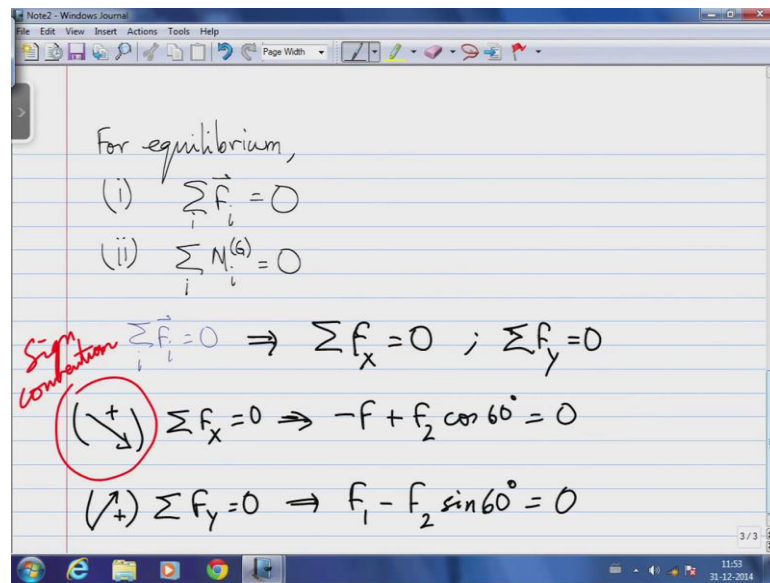 Note2 - Windows Journal
File Edit View Insert Actions Tools Help
Page Width
For equilibrium,
(i) ∑_i F⃗_i = 0
(ii) ∑_i M_i^(G) = 0
Sign convention
∑_i F⃗_i = 0 ⇒ ∑ F_x = 0 ; ∑ F_y = 0
(↘+) ∑ F_x = 0 ⇒ -F + F_2 cos 60° = 0
(↗+) ∑ F_y = 0 ⇒ F_1 - F_2 sin 60° = 0
3/3
11:53
31-12-2014